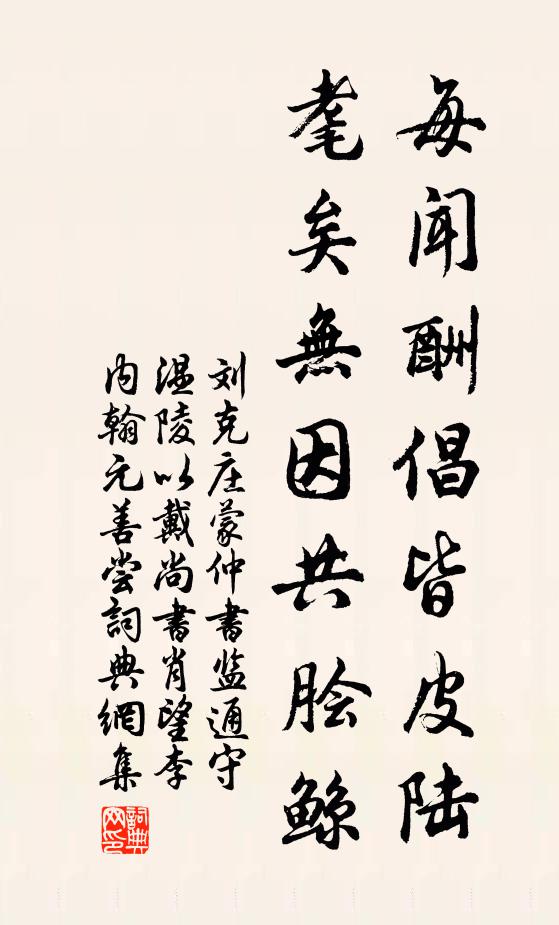 每闻酬倡皆皮陆
耄矣無因共脍鲸
刘克庄蒙仲書监通守
温陵以戴尚書肖望李
内翰元善尝詞典網集
詞典
网印